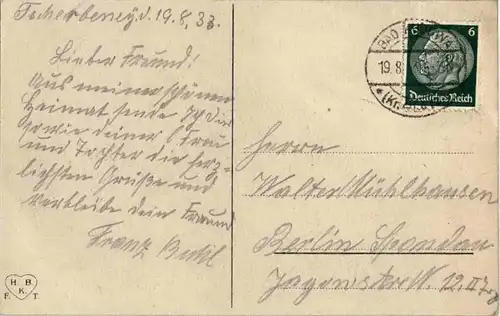 Tscherbeney, d. 19.8,33.
Lieber Freund!
Aus meiner schönen
Heimat sende Ich dir
sowie deiner l. Frau
und Tochter die herz-
lichsten Grüße und
verbleibe dein Freund
Franz
BAD
6 6
19.8.
Deutsches Reich
Herrn
Walter Mühlhausen
Berlin Spandau
H B
K
F. T.